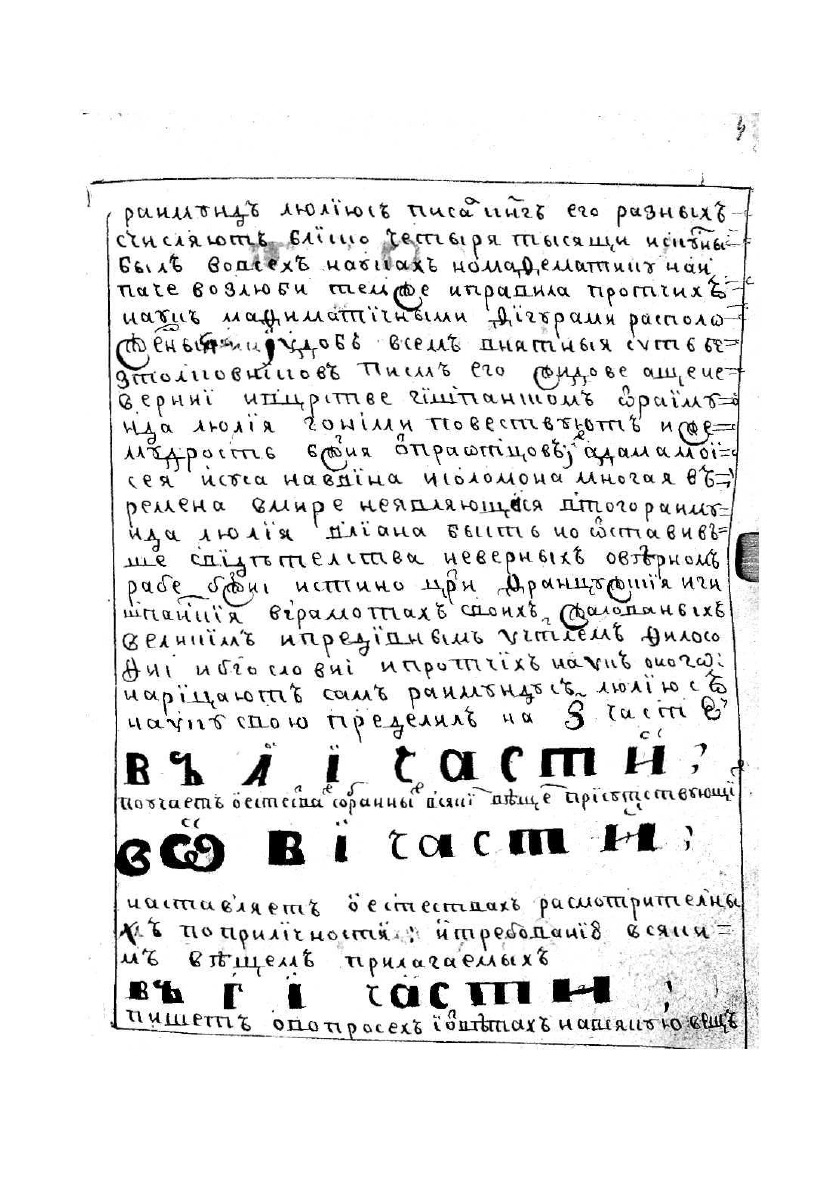 раимундъ люлїюсъ писа книгъ его разныхъ
счисляютъ близко четыря тысящи искусны
былъ вовсехъ наукахъ но маѳематику наи
паче возлюби темже иправила протчихъ
наукъ маѳиматїчными ѳїгурами располо
жены удобъ всемъ внятныя суть бе
зтолковниковъ писмъ его
верниї ипцрстве гїшпанскомъ ѡраїму
нда люлїя гоними повествуютъ иже
мудрость бжия ѿ праѡтцовъ адама мої
сея ісуса навvїна исоломона многая въ
ремена вмире неявляющаяся ѿтого раиму
нда люлїя вліана бысть но ѡставивъ
ше свідѣтелства неверныхъ овѣрномъ
рабе бжиї истинно црїи ѳранцужскїя иги
шпанскїя вграмотахъ своихъ жалованыхъ
великїмъ ипредівнымъ учтлемъ ѳилосо
ѳиї ибгословиї ипротчїхъ наукъ оногѡ
нарїцаютъ самъ раимундусъ люлїюсъ
науку свою пределилъ на З части
въ А ї части
поучаетъ ѡестества собранны всякї вѣще присутствующї
во В ї части
наставляетъ ѡестествахъ расмотрителны
хъ поприлїчности їтребованїю всяки
мъ вѣщемъ прилагаемыхъ
въ Г ї части
пишетъ овопросехъ їѿвѣтахъ навсякую вещъ